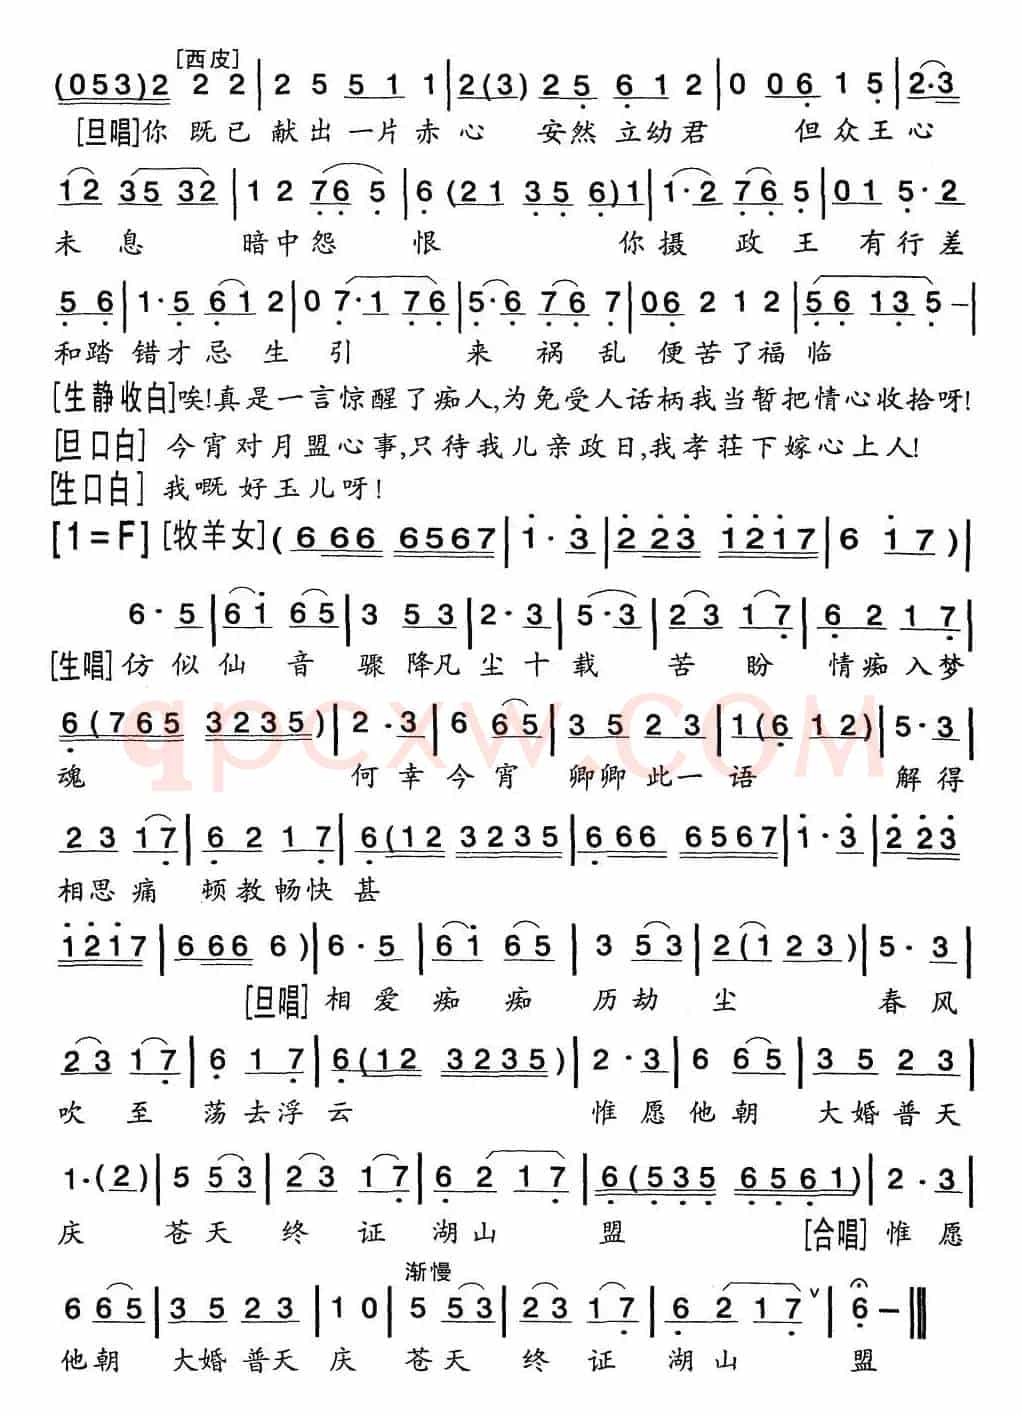 [西皮]
(053)2 2 2 | 2 5 5 1 1 | 2(3) 2 5 6 1 2 | 0 0 6 1 5 | 2·3
[旦唱]你 既已 献出 一片赤心 安然 立幼君 但众王心
1 2 35 32 | 1 2 76 5 | 6 (21 35 6)1 | 1·2 76 5 | 01 5·2
未 息 暗中怨 恨 你摄 政 王 有行差
5 6 | 1·5 61 2 | 0 7·1 76 | 5·6 76 7 | 06 2 1 2 | 56 13 5 — |
和踏 错才忌 生 引 来 祸 乱 便苦了福 临
[生静收白]唉!真是一言惊醒了痴人,为免受人话柄我当暂把情心收拾呀!
[旦口白] 今宵对月盟心事,只待我儿亲政日,我孝荘下嫁心上人!
[生口白] 我嘅 好玉儿呀!
[1=F] [牧羊女] (6 66 6567 | 1·3 | 2 23 1217 | 6 17) |
6·5 | 61 65 | 3 53 | 2·3 | 5·3 | 23 17 | 62 17 |
[生唱] 仿 似 仙 音 骤 降凡 尘 十 载 苦 盼 情痴入梦
6(765 3235) | 2·3 | 6 65 | 35 23 | 1(6 12) | 5·3 |
魂 何幸今宵 卿卿此一语 解得
qpcxw.COM
23 17 | 62 17 | 6(12 3235 | 6 66 6567 | 1·3 | 2 23
相思痛 顿教畅快甚
1217 | 6 66 6) | 6·5 | 61 65 | 3 53 | 2(1 23) | 5·3 |
[旦唱] 相 爱 痴 痴 历劫 尘 春风
23 17 | 6 17 | 6(12 3235) | 2·3 | 6 65 | 35 23 |
吹 至 荡去浮云 惟愿他朝 大婚普天
1·(2) | 5 53 | 23 17 | 62 17 | 6(535 6561) | 2·3 |
庆 苍天 终 证 湖山 盟 [合唱] 惟愿
渐慢
6 65 | 35 23 | 1 0 | 5 53 | 23 17 | 62 17 ∨ | 6 — |||
他朝 大婚普天 庆 苍天 终 证 湖山 盟